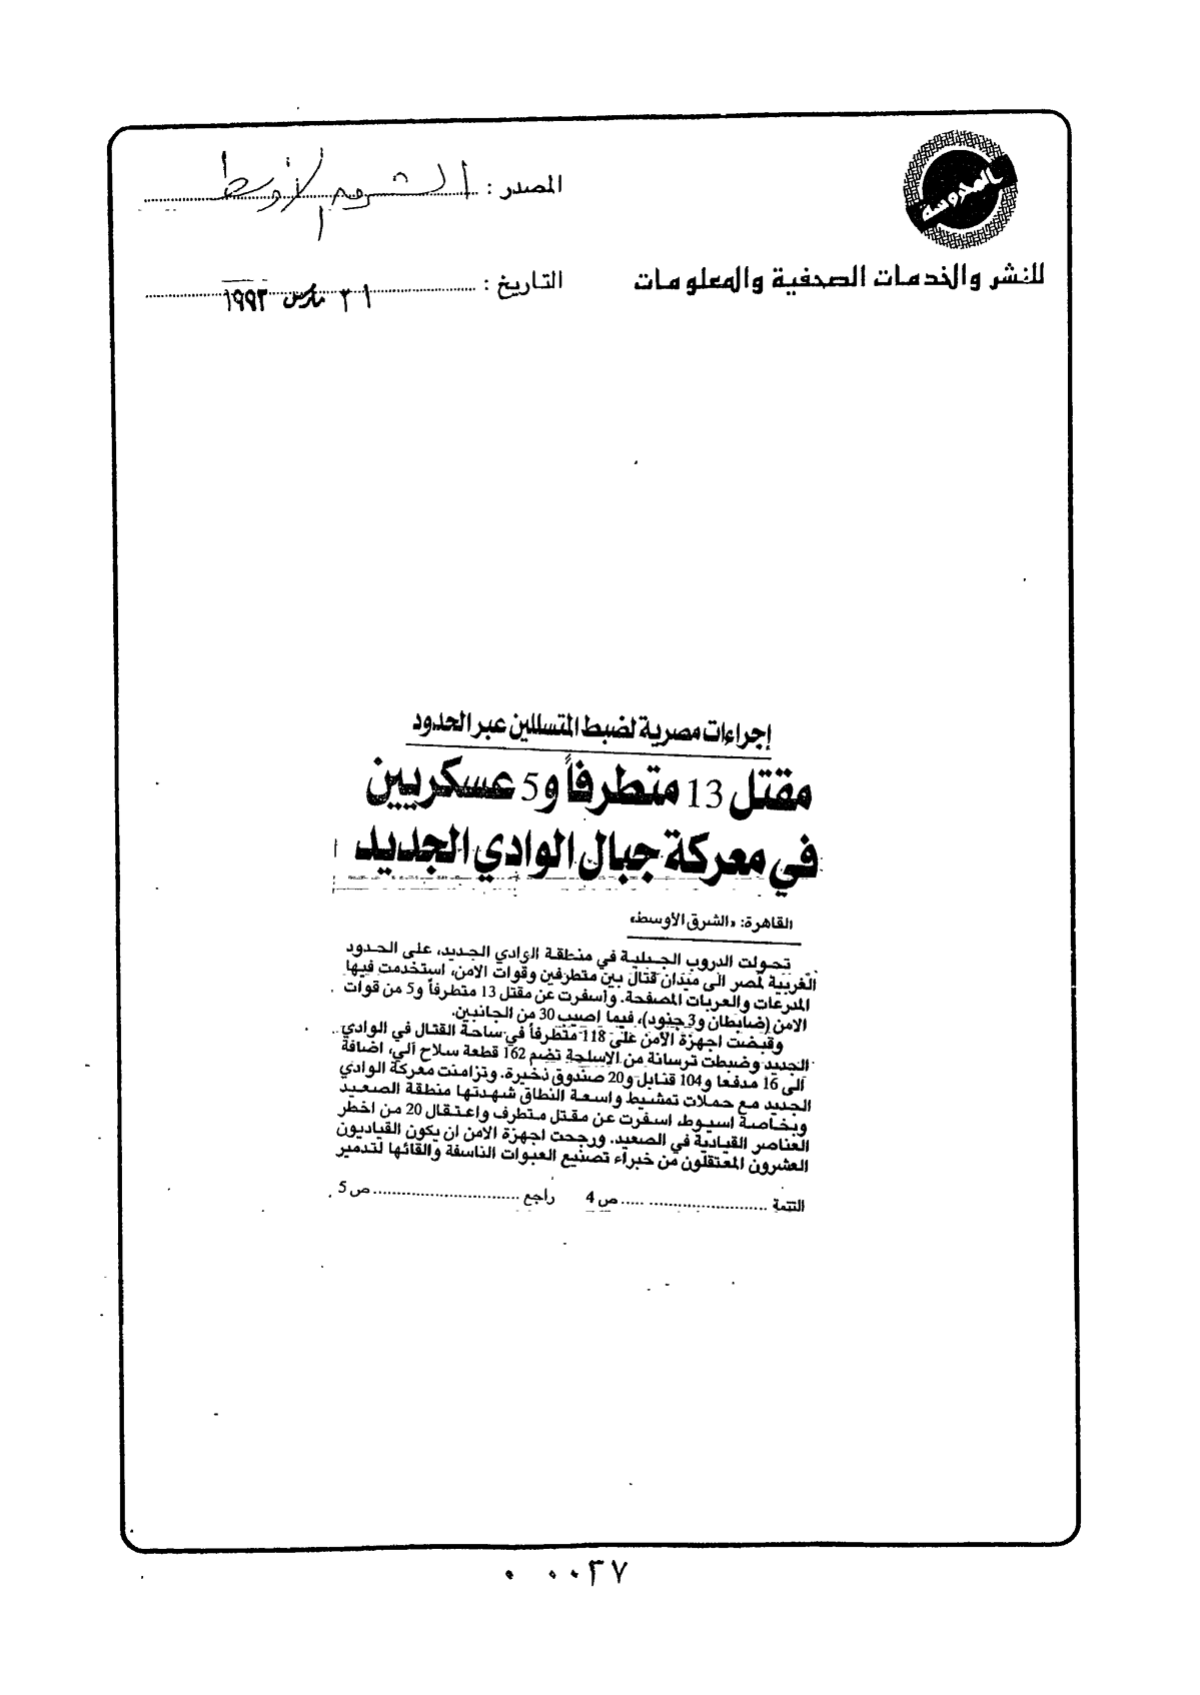 المحروسة
للنشر والخدمات الصحفية والمعلومات
المصدر : الشرق الأوسط
التاريخ : ٣١ مارس ١٩٩٣
إجراءات مصرية لضبط المتسللين عبر الحدود
مقتل 13 متطرفاً و5 عسكريين
في معركة جبال الوادي الجديد
القاهرة: «الشرق الأوسط»
تحولت الدروب الجبلية في منطقة الوادي الجديد، على الحدود
الغربية لمصر الى ميدان قتال بين متطرفين وقوات الامن، استخدمت فيها
المدرعات والعربات المصفحة. واسفرت عن مقتل 13 متطرفاً و5 من قوات
الامن (ضابطان و3 جنود)، فيما اصيب 30 من الجانبين.
وقبضت اجهزة الأمن على 118 متطرفاً في ساحة القتال في الوادي
الجديد وضبطت ترسانة من الاسلحة تضم 162 قطعة سلاح آلي، اضافة
الى 16 مدفعا و104 قنابل و20 صندوق ذخيرة. وتزامنت معركة الوادي
الجديد مع حملات تمشيط واسعة النطاق شهدتها منطقة الصعيد
وبخاصة اسيوط، اسفرت عن مقتل متطرف واعتقال 20 من اخطر
العناصر القيادية في الصعيد. ورجحت اجهزة الامن ان يكون القياديون
العشرون المعتقلون من خبراء تصنيع العبوات الناسفة والقائها لتدمير
التتمة ........................ ص 4 راجع ........................ ص 5
٠ ٠٠٢٧